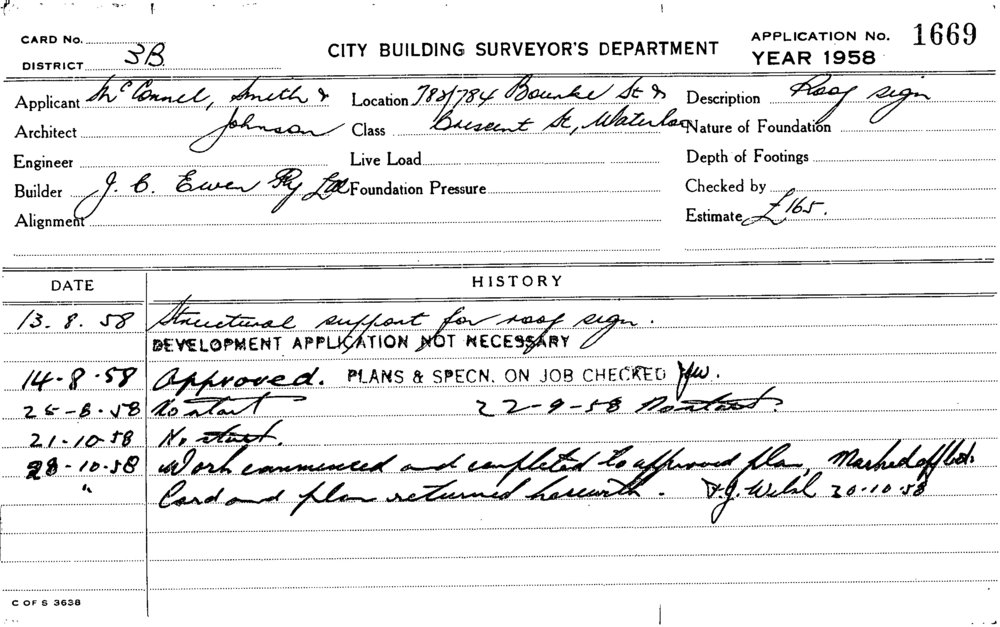 CARD No.
DISTRICT 3B
CITY BUILDING SURVEYOR'S DEPARTMENT
APPLICATION No. 1669
YEAR 1958
Applicant McConnel, Smith & Location 782/784 Bourke St & Description Roof sign
Architect Johnson Class Crescent St, Waterloo Nature of Foundation
Engineer Live Load Depth of Footings
Builder J. C. Ewen Pty Ltd Foundation Pressure Checked by
Alignment Estimate £165.
DATE HISTORY
13. 8. 58 Structural support for roof sign.
DEVELOPMENT APPLICATION NOT NECESSARY
14-8-58 Approved. PLANS & SPECN. ON JOB CHECKED
25-8-58 No start 22-9-58 No start.
21-10-58 No start.
28-10-58 Work commenced and completed to approved plan, Marked off
" Card and plan returned herewith. 30-10-58
C OF S 3638